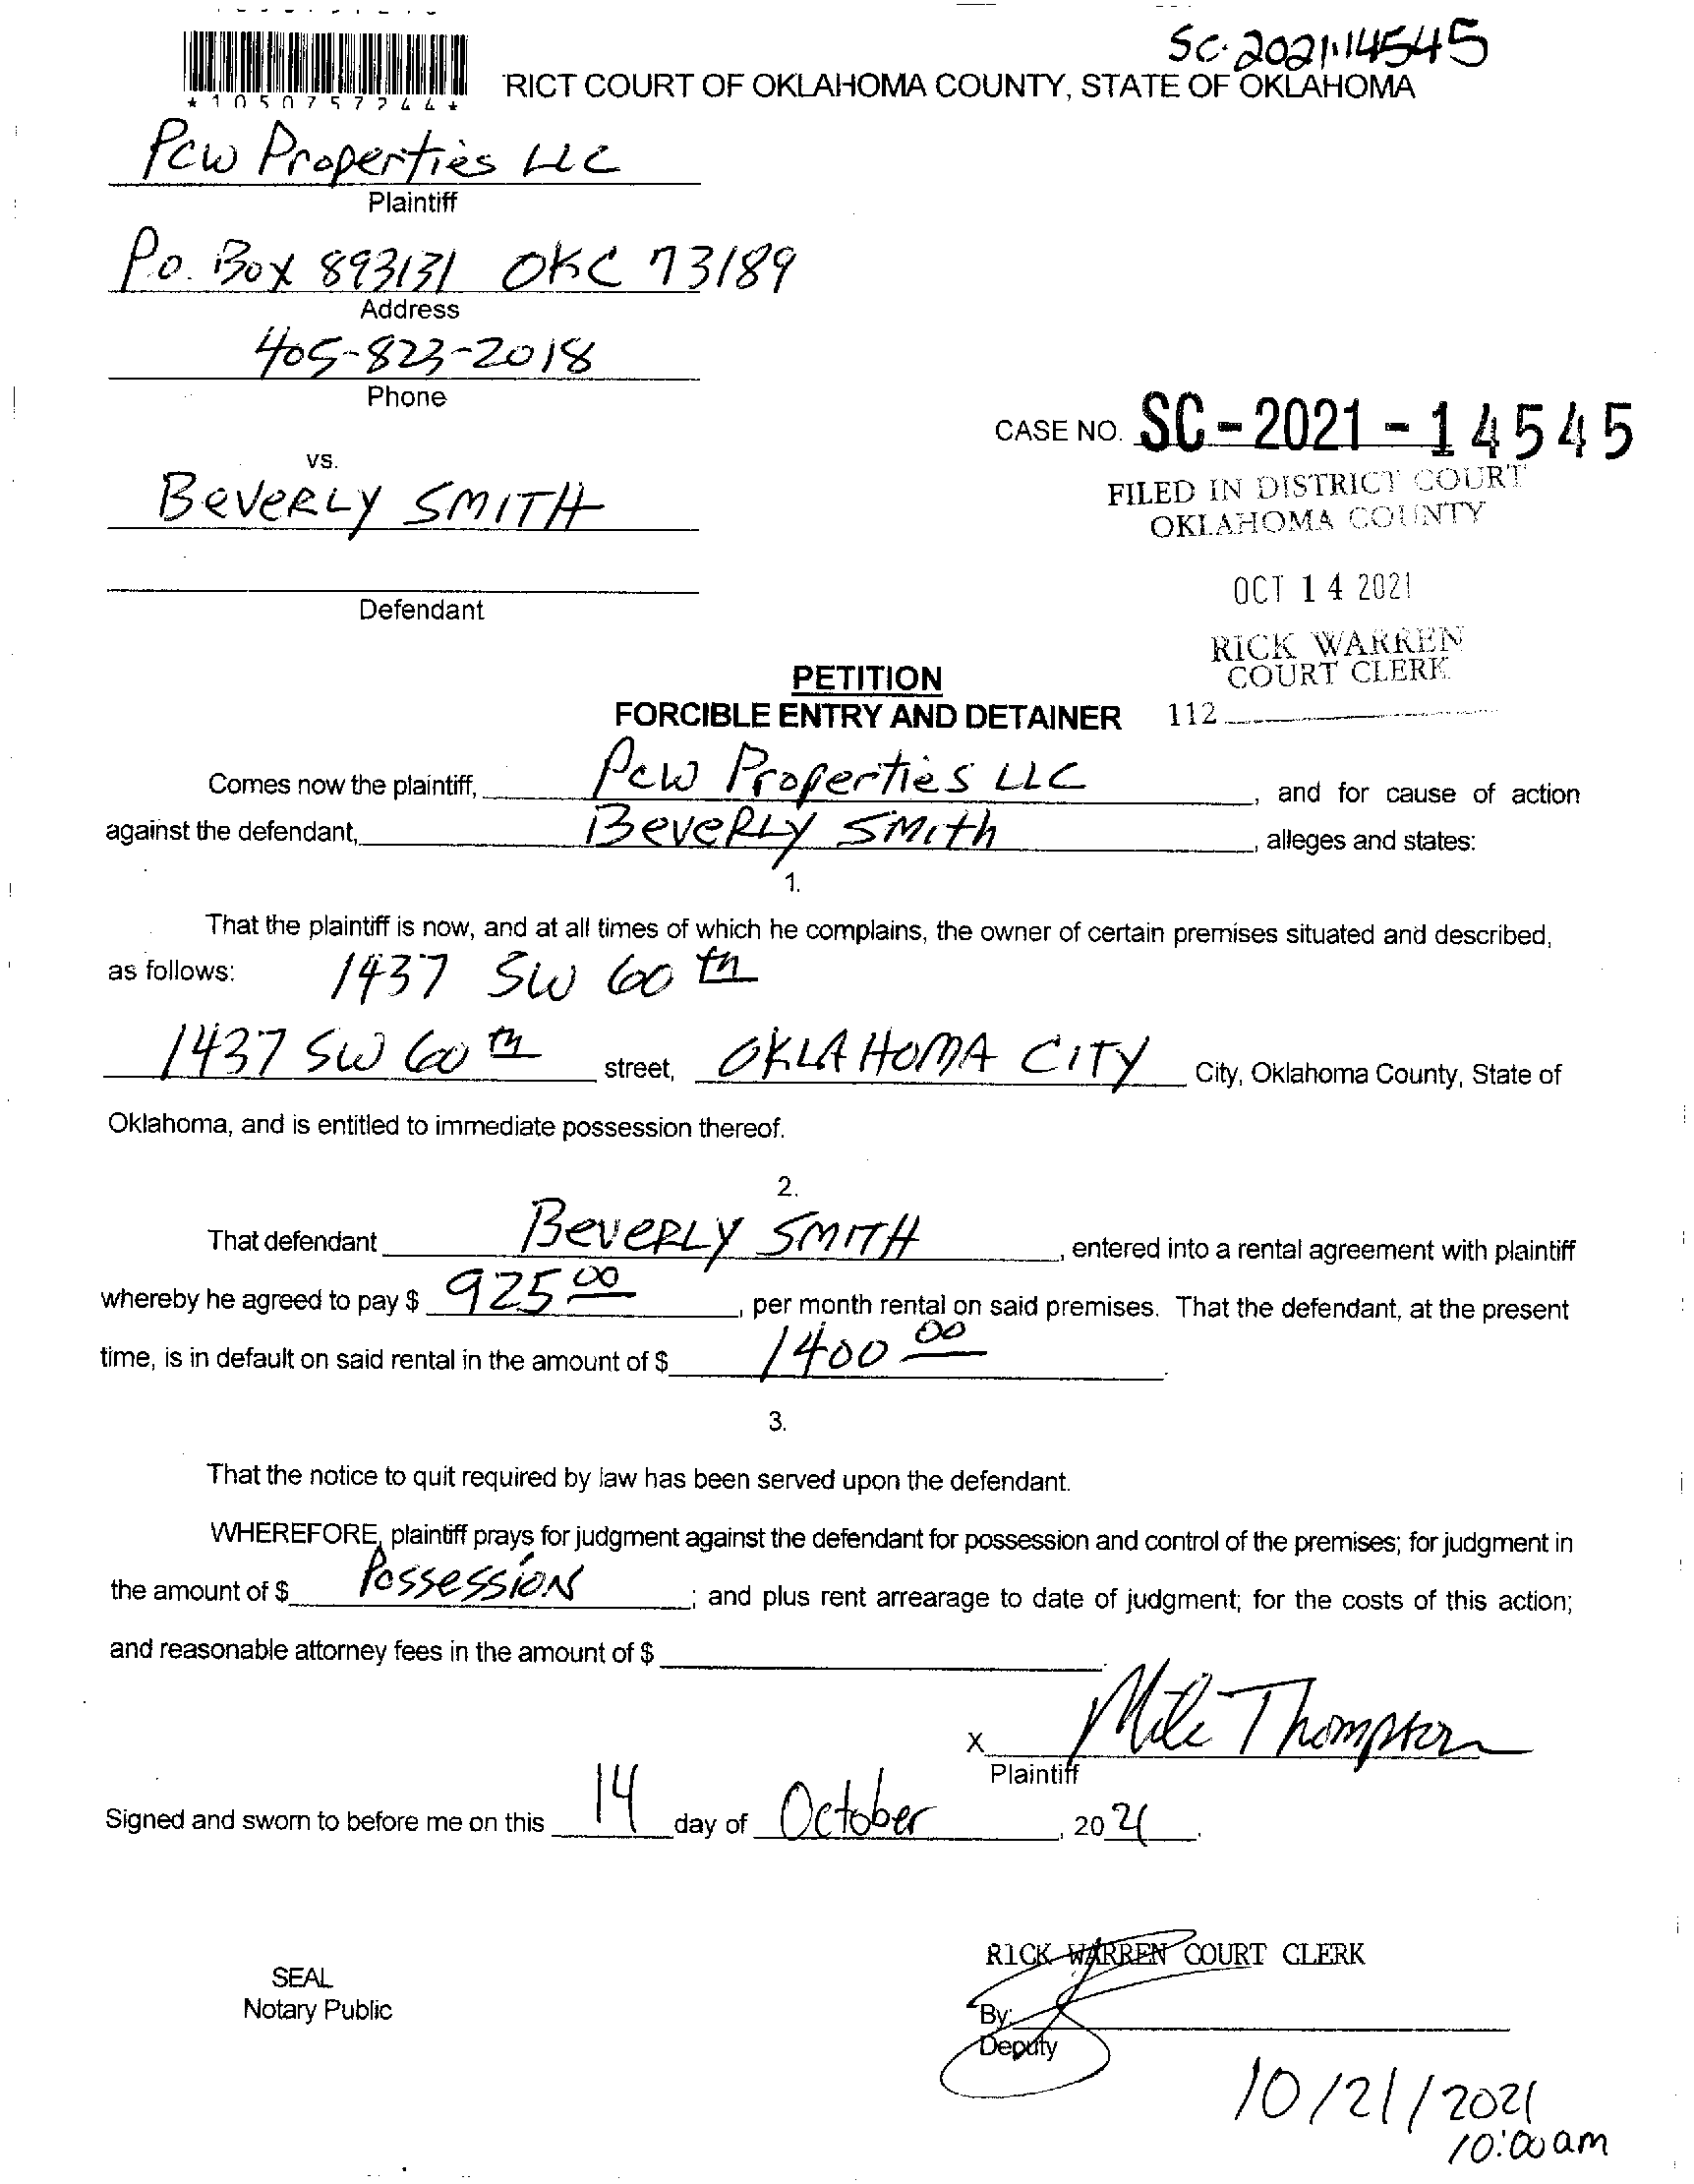 SC-2021-14545
*1050757244*
RICT COURT OF OKLAHOMA COUNTY, STATE OF OKLAHOMA
PCW Properties LLC
Plaintiff
P.O. Box 893131 OKC 73189
Address
405-823-2018
Phone
CASE NO. SC-2021-14545
vs.
BeVeRLY SMITH
FILED IN DISTRICT COURT
OKLAHOMA COUNTY
OCT 14 2021
Defendant
RICK WARREN
COURT CLERK
112
PETITION
FORCIBLE ENTRY AND DETAINER
Comes now the plaintiff, PCW Properties LLC, and for cause of action
against the defendant, BeveRLY SMith, alleges and states:
1.
That the plaintiff is now, and at all times of which he complains, the owner of certain premises situated and described,
as follows: 1437 SW 60th
1437 SW 60th street, OKLAHOMA CITY City, Oklahoma County, State of
Oklahoma, and is entitled to immediate possession thereof.
2.
That defendant BeVeRLY SMITH, entered into a rental agreement with plaintiff
whereby he agreed to pay $ 925 00, per month rental on said premises. That the defendant, at the present
time, is in default on said rental in the amount of $ 1400 00.
3.
That the notice to quit required by law has been served upon the defendant.
WHEREFORE, plaintiff prays for judgment against the defendant for possession and control of the premises; for judgment in
the amount of $ PossessioN; and plus rent arrearage to date of judgment; for the costs of this action;
and reasonable attorney fees in the amount of $
X Mike Thompson
Plaintiff
Signed and sworn to before me on this 14 day of October, 2021.
RICK WARREN COURT CLERK
SEAL
Notary Public
By:
Deputy
10/21/2021
10:00am